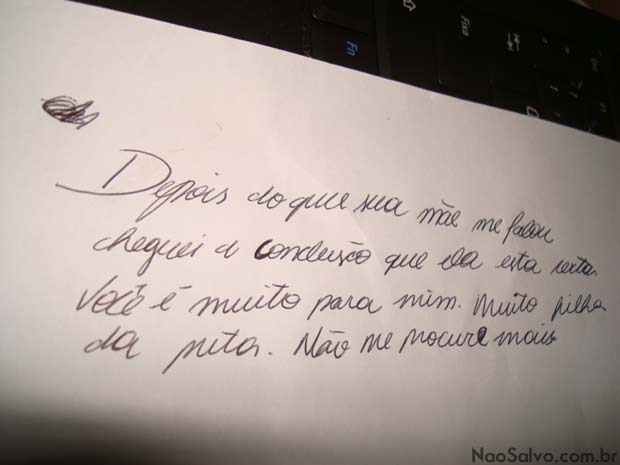 Fn
Depois do que sua mãe me falou
cheguei a conclusão que ela esta certa.
Você é muito para mim. Muito filha
da puta. Não me procure mais
NaoSalvo.com.br